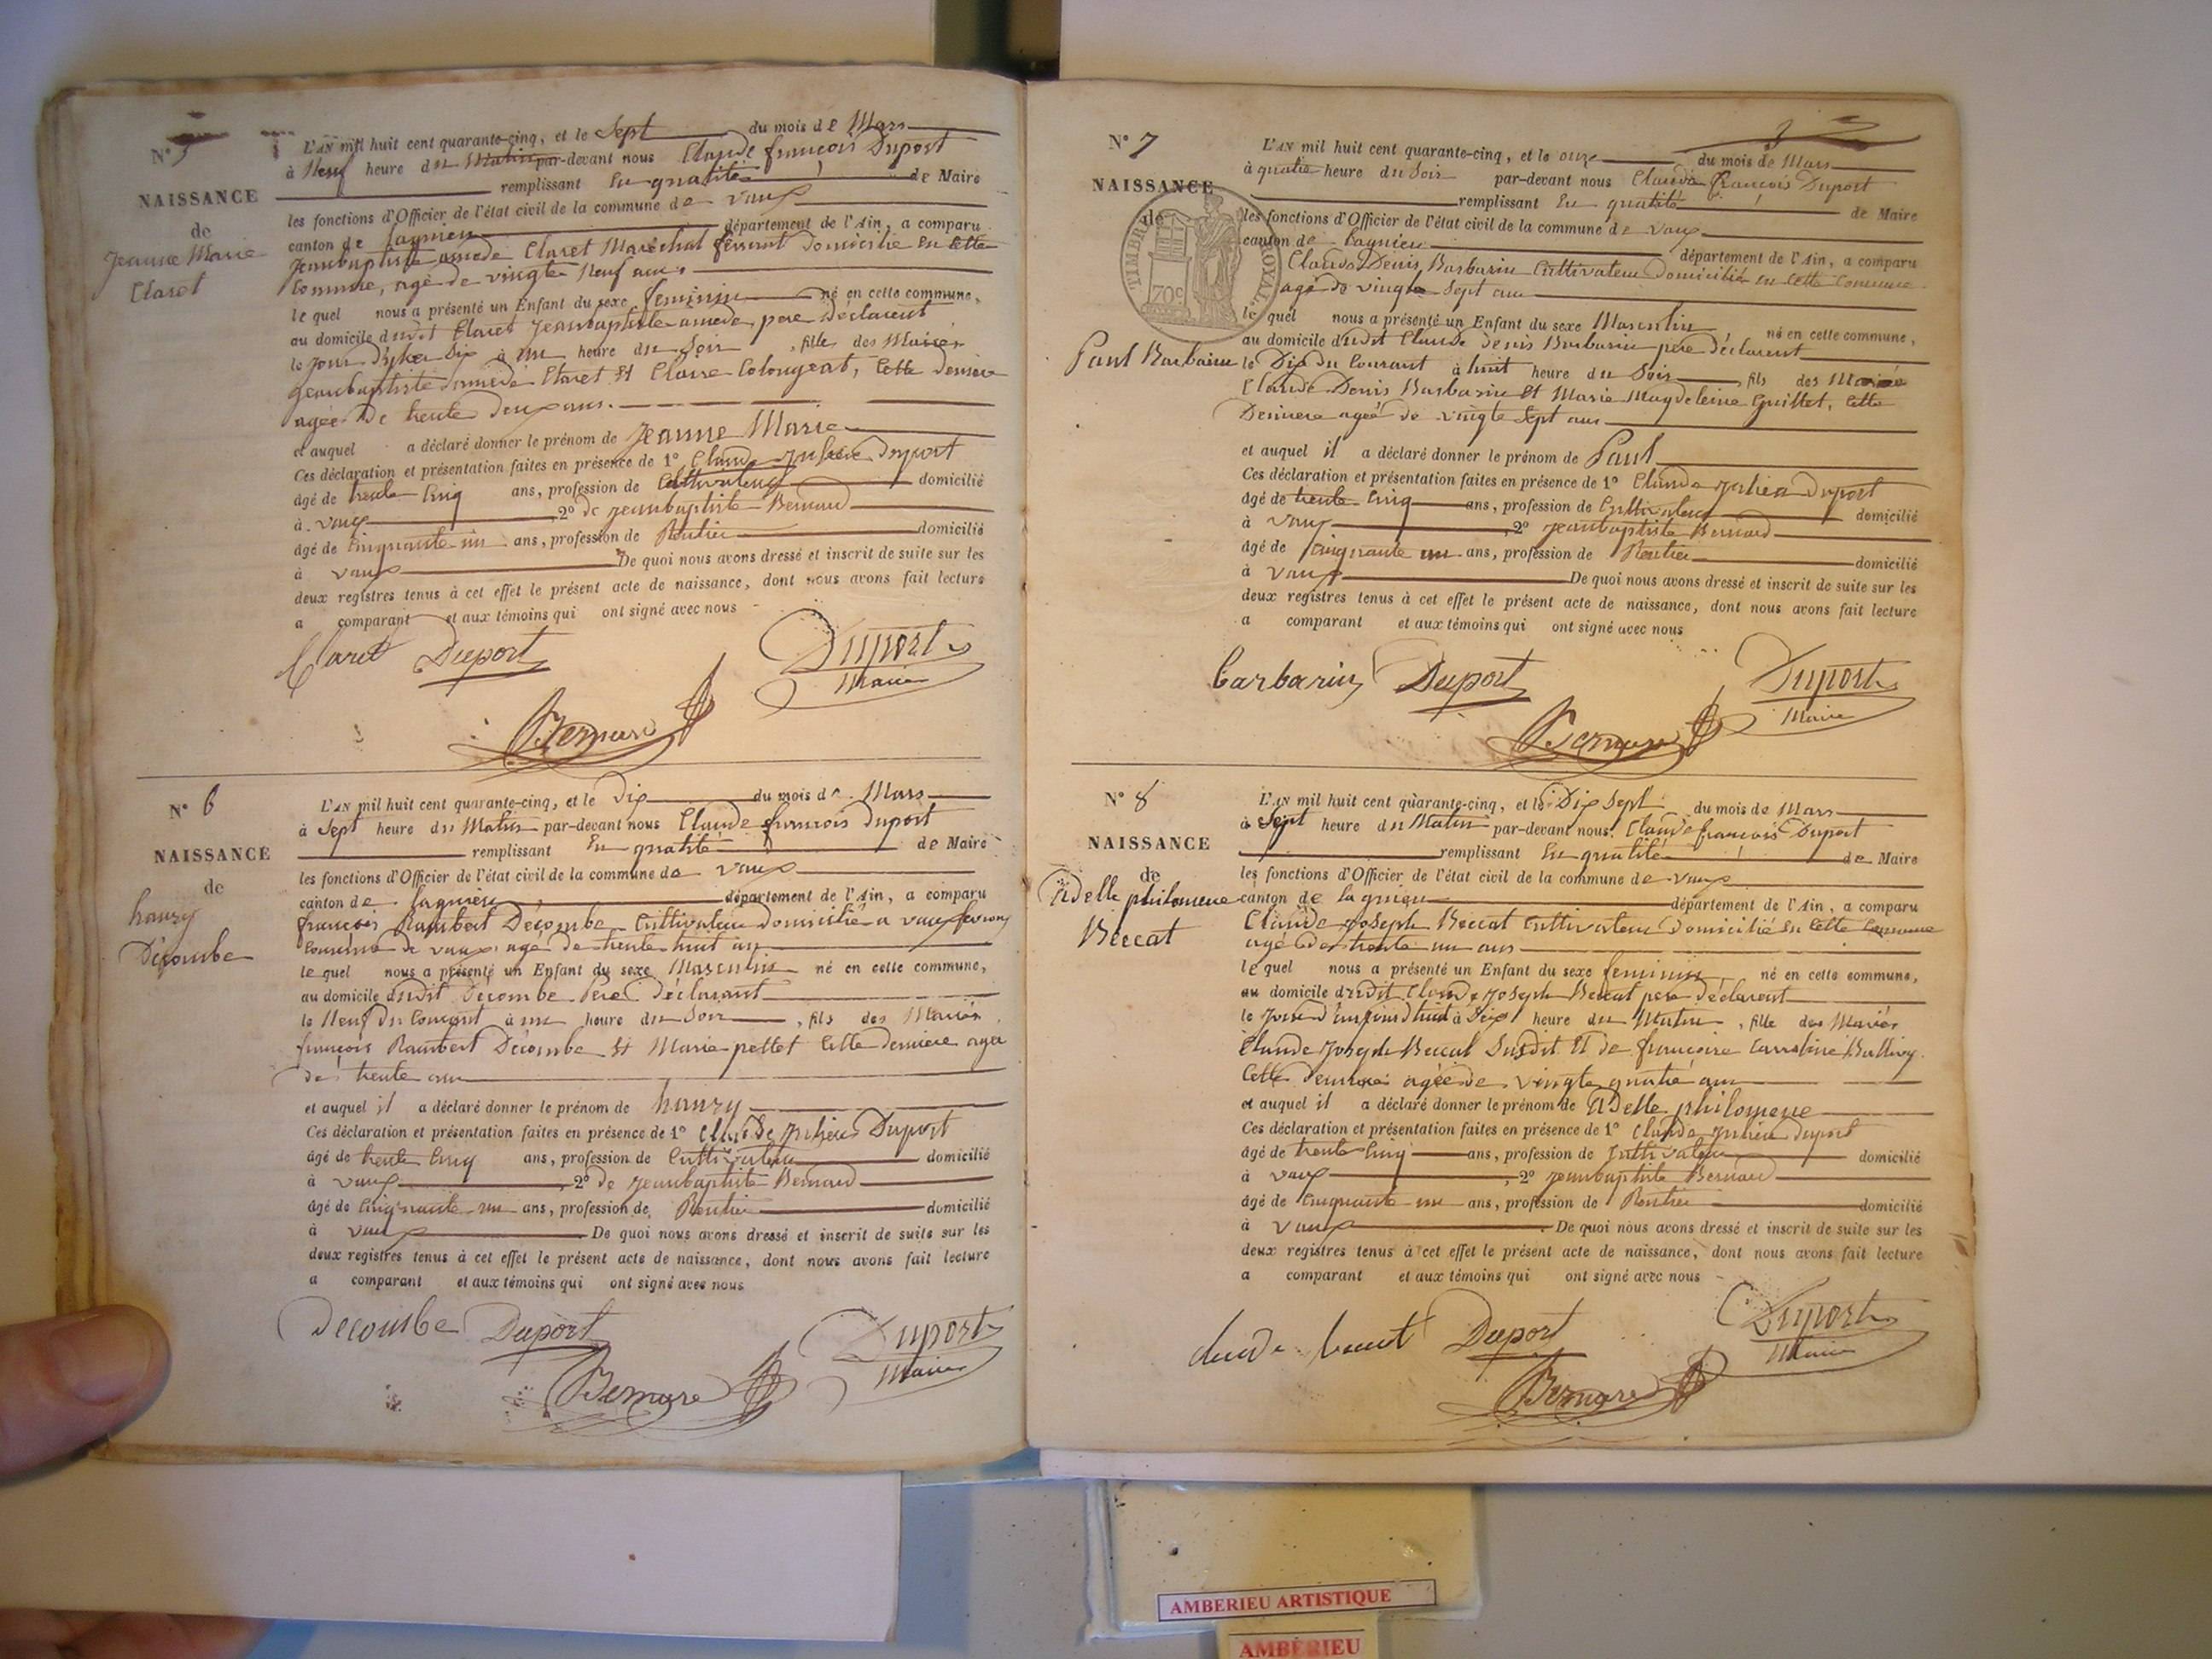 N° 5
NAISSANCE
de
Jeanne Marie
Claret
L'AN mil huit cent quarante-cinq, et le Sept du mois de Mars
à Neuf heure du Matin par-devant nous Claude françois Duport
remplissant En qualité de Maire
les fonctions d'Officier de l'état civil de la commune de vaux
canton de Lagnieu département de l'Ain, a comparu
Jeanbaptiste amede Claret Maréchal ferrant domicilié en Cette
Commune, agé de vingte Neuf ans
le quel nous a présenté un Enfant du sexe feminin né en cette commune,
au domicile dudit Claret Jeanbaptiste amede, pere déclarent
le Jour d'hier Six à un heure du Soir, fille des Mariés
Jeanbaptiste amede Claret Et Claire Colongeat, Cette derniere
agée de trente deux ans.
et auquel a déclaré donner le prénom de Jeanne Marie
Ces déclaration et présentation faites en présence de 1° Claude Julien Duport
âgé de trente Cinq ans, profession de Cultivateur domicilié
à vaux 2° de Jeanbaptiste Bernard
âgé de Cinquante un ans, profession de Rentier domicilié
à vaux De quoi nous avons dressé et inscrit de suite sur les
deux registres tenus à cet effet le présent acte de naissance, dont nous avons fait lecture
a comparant et aux témoins qui ont signé avec nous
Claret Duport Duport
Maire
Bernard
N° 6
NAISSANCE
de
hanry
Décombe
L'AN mil huit cent quarante-cinq, et le Dix du mois de Mars
à Sept heure du Matin par-devant nous Claude françois Duport
remplissant En qualité de Maire
les fonctions d'Officier de l'état civil de la commune de vaux
canton de Lagnieu département de l'Ain, a comparu
françois Rambert Décombe Cultivateur domicilié a vaux fevroux
Commune de vaux agé de trente huit an
le quel nous a présenté un Enfant du sexe Masculin né en cette commune,
au domicile dudit Décombe Pere déclarant
le Neuf du Courant à un heure du Soir, fils des Mariés
françois Rambert Décombe Et Marie pettet Cette derniere agée
de trente ans
et auquel il a déclaré donner le prénom de hanry
Ces déclaration et présentation faites en présence de 1° Claude Julien Duport
âgé de trente Cinq ans, profession de Cultivateur domicilié
à vaux 2° de Jeanbaptiste Bernard
âgé de Cinquante un ans, profession de Rentier domicilié
à vaux De quoi nous avons dressé et inscrit de suite sur les
deux registres tenus à cet effet le présent acte de naissance, dont nous avons fait lecture
a comparant et aux témoins qui ont signé avec nous
Decombe Duport Duport
Maire
Bernard
N° 7
NAISSANCE
de
Paul Barbarin
TIMBRE ROYAL
70c
L'AN mil huit cent quarante-cinq, et le onze du mois de Mars
à quatre heure du Soir par-devant nous Claude françois Duport
remplissant En qualité de Maire
les fonctions d'Officier de l'état civil de la commune de vaux
canton de Lagnieu département de l'Ain, a comparu
Claude Denis Barbarin Cultivateur domicilié en Cette Commune
agé de vingte Sept ans
le quel nous a présenté un Enfant du sexe Masculin né en cette commune,
au domicile dudit Claude Denis Barbarin pere déclarent
le Dix du Courant à huit heure du Soir fils des Mariés
Claude Denis Barbarin Et Marie Magdeleine Guillet, Cette
Derniere agée de vingte Sept ans
et auquel il a déclaré donner le prénom de Paul
Ces déclaration et présentation faites en présence de 1° Claude Julien Duport
âgé de trente Cinq ans, profession de Cultivateur domicilié
à vaux 2° Jeanbaptiste Bernard
âgé de Cinquante un ans, profession de Rentier domicilié
à vaux De quoi nous avons dressé et inscrit de suite sur les
deux registres tenus à cet effet le présent acte de naissance, dont nous avons fait lecture
a comparant et aux témoins qui ont signé avec nous
barbarin Duport Duport
Maire
Bernard
N° 8
NAISSANCE
de
Adelle philomene
Beccat
L'AN mil huit cent quarante-cinq, et le Dix Sept du mois de Mars
à Sept heure du Matin par-devant nous Claude françois Duport
remplissant En qualité de Maire
les fonctions d'Officier de l'état civil de la commune de vaux
canton de lagnieu département de l'Ain, a comparu
Claude Joseph Beccat Cultivateur domicilié En Cette Commune
agé de trente un ans
le quel nous a présenté un Enfant du sexe feminin né en cette commune,
au domicile dudit Claude Joseph Beccat pere déclarent
le Jour d'aujourd'huit à Six heure du Matin, fille des Mariés
Claude Joseph Beccat Susdit Et de françoise Carroline
Cette derniere agée de vingte quatre ans
et auquel il a déclaré donner le prénom de Adelle philomene
Ces déclaration et présentation faites en présence de 1° Claude Julien Duport
âgé de trente Cinq ans, profession de Cultivateur domicilié
à vaux 2° Jeanbaptiste Bernard
âgé de Cinquante un ans, profession de Rentier domicilié
à vaux De quoi nous avons dressé et inscrit de suite sur les
deux registres tenus à cet effet le présent acte de naissance, dont nous avons fait lecture
a comparant et aux témoins qui ont signé avec nous
Duport Duport
Maire
Bernard
AMBERIEU ARTISTIQUE
AMBÉRIEU